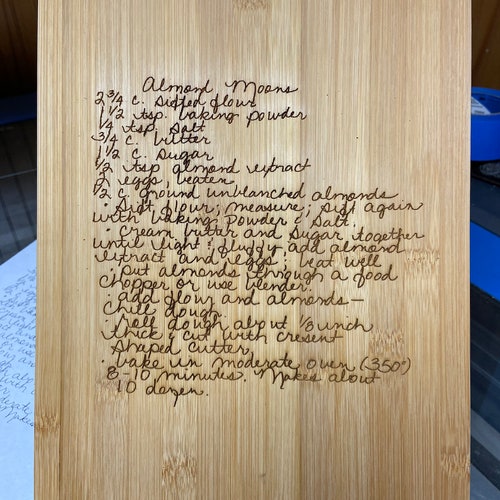 Almond Moons
2 3/4 c. sifted flour
1 1/2 tsp. baking powder
1/4 tsp salt
3/4 c. butter
1 1/2 c. sugar
1/2 tsp almond extract
2 eggs, beaten
1/2 c ground unblanched almonds
· Sift flour; measure; sift again
with baking powder & salt.
· cream butter and sugar together
until light & fluffy add almond
extract and eggs; beat well
· put almonds through a food
chopper or use blender.
· add flour and almonds—
chill dough.
· roll dough about 1/8 inch
thick & cut with cresent
shaped cutter.
· bake in moderate oven (350°)
8-10 minutes. Makes about
10 dozen.